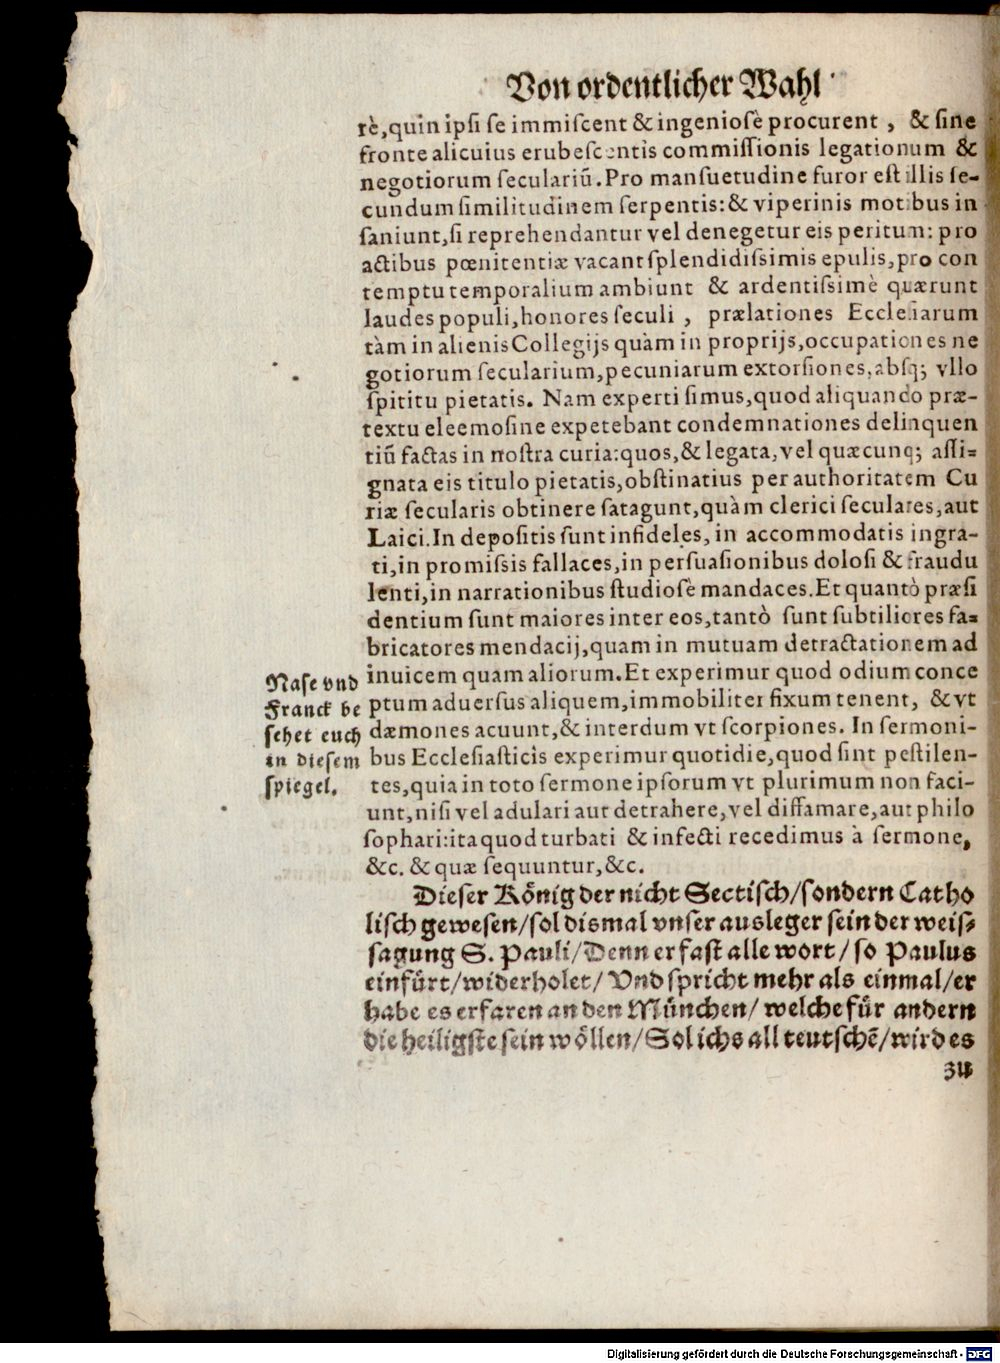 Von ordentlicher Wahl
rè,quin ipsi se immiscent & ingeniosè procurent , & sine
fronte alicuius erubescentis commissionis legationum &
negotiorum seculariũ. Pro mansuetudine furor est illis se-
cundum similitudinem serpentis: & viperinis motibus in
saniunt, si reprehendantur vel denegetur eis peritum: pro
actibus pœnitentiæ vacant splendidissimis epulis, pro con
temptu temporalium ambiunt & ardentissimè quærunt
laudes populi, honores seculi , prælationes Ecclesiarum
tàm in alienis Collegijs quàm in proprijs, occupationes ne
gotiorum secularium, pecuniarum extorsiones, absq; vllo
spititu pietatis. Nam experti simus, quod aliquando præ-
textu eleemosine expetebant condemnationes delinquen
tiũ factas in nostra curia: quos, & legata, vel quæcunq; assi=
gnata eis titulo pietatis, obstinatius per authoritatem Cu
riæ secularis obtinere satagunt, quàm clerici seculares, aut
Laici. In depositis sunt infideles, in accommodatis ingra-
ti, in promissis fallaces, in persuasionibus dolosi & fraudu
lenti, in narrationibus studiosè mandaces. Et quantò præsi
dentium sunt maiores inter eos, tantò sunt subtiliores fa=
bricatores mendacij, quam in mutuam detractationem ad
inuicem quam aliorum. Et experimur quod odium conce
ptum aduersus aliquem, immobiliter fixum tenent, & vt
dæmones acuunt, & interdum vt scorpiones. In sermoni-
bus Ecclesiasticis experimur quotidie, quod sint pestilen-
tes, quia in toto sermone ipsorum vt plurimum non faci-
unt, nisi vel adulari aut detrahere, vel diffamare, aut philo
sophari: ita quod turbati & infecti recedimus à sermone,
&c. & quæ sequuntur, &c.
Nase vnd
Franck be
sehet euch
in diesem
spiegel.
Dieser König der nicht Sectisch/sondern Catho
lisch gewesen/sol dismal vnser ausleger sein der weis⸗
sagung S. Pauli/Denn er fast alle wort/so Paulus
einfürt/widerholet/Vnd spricht mehr als einmal/er
habe es erfaren an den München/welche für andern
die heiligste sein wöllen/Sol ichs all teutschẽ/wird es
zu
Digitalisierung gefördert durch die Deutsche Forschungsgemeinschaft - DFG